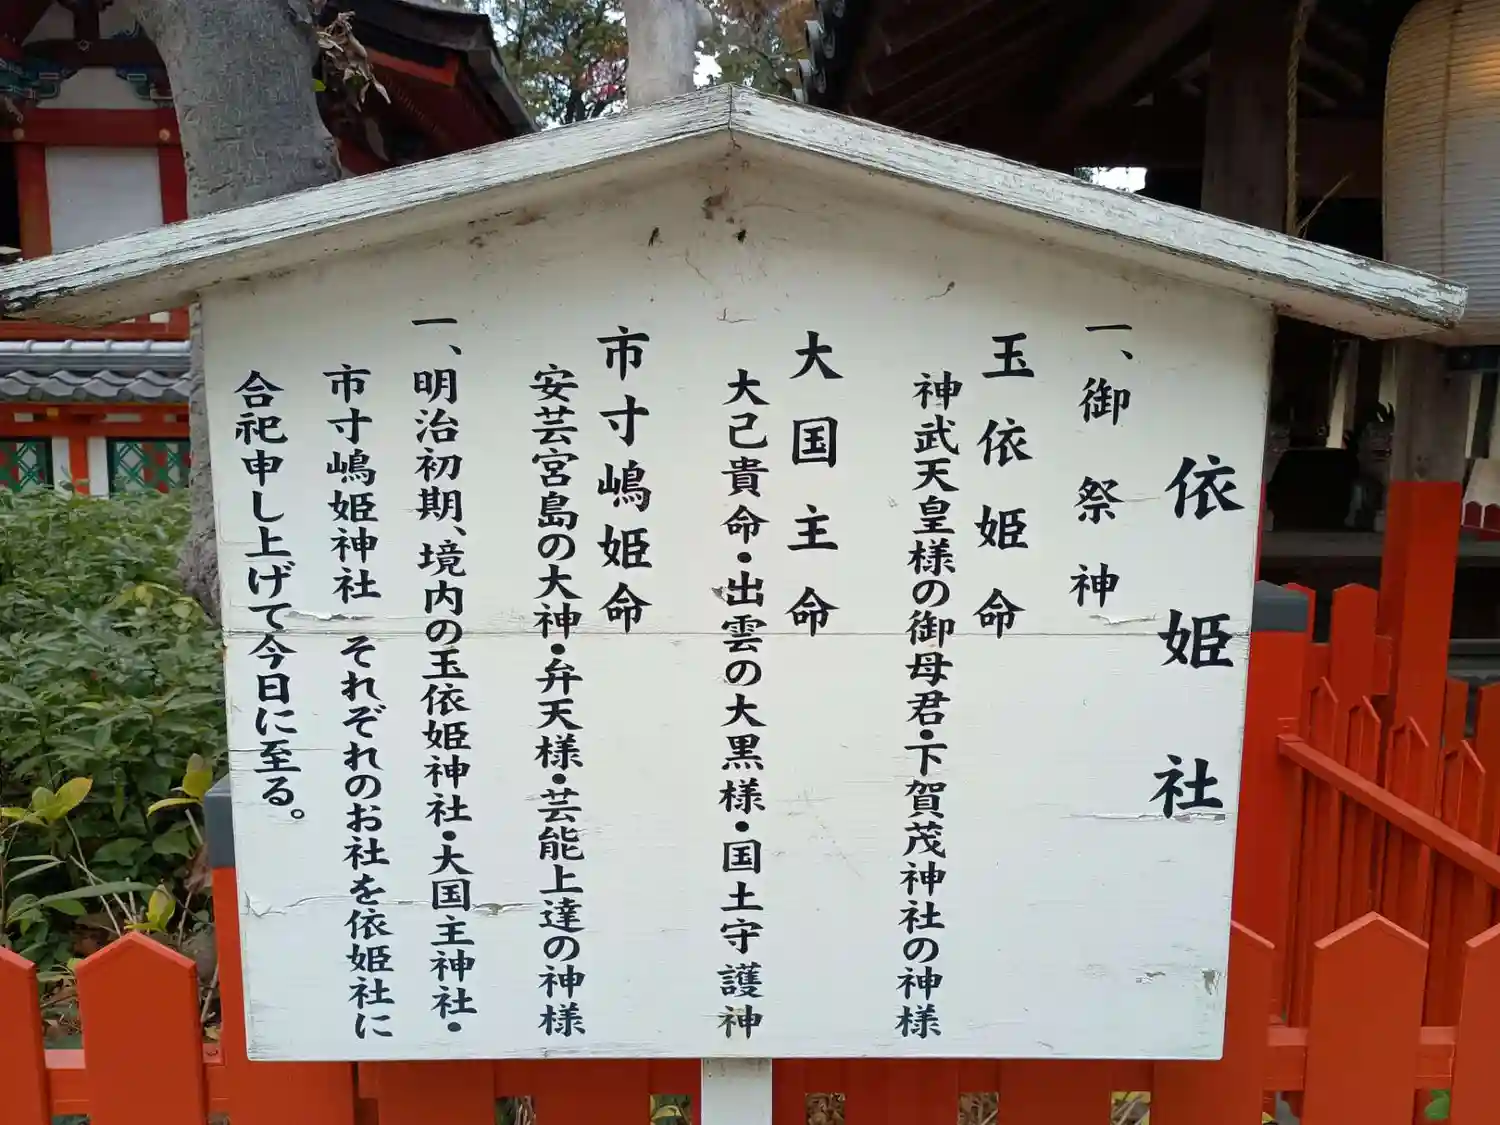 依姫社
一、御祭神
玉依姫命
神武天皇様の御母君・下賀茂神社の神様
大国主命
大己貴命・出雲の大黒様・国土守護神
市寸嶋姫命
安芸宮島の大神・弁天様・芸能上達の神様
一、明治初期、境内の玉依姫神社・大国主神社・
市寸嶋姫神社 それぞれのお社を依姫社に
合祀申し上げて今日に至る。